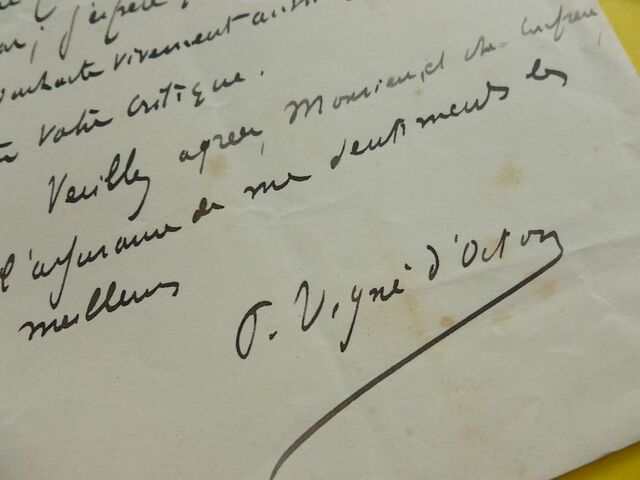 ; j'espère
souhaite vivement
votre critique.
Veuillez agréer, Monsieur et cher confrère,
l'assurance de mes sentiments les
meilleurs
P. Vigné d'Octon